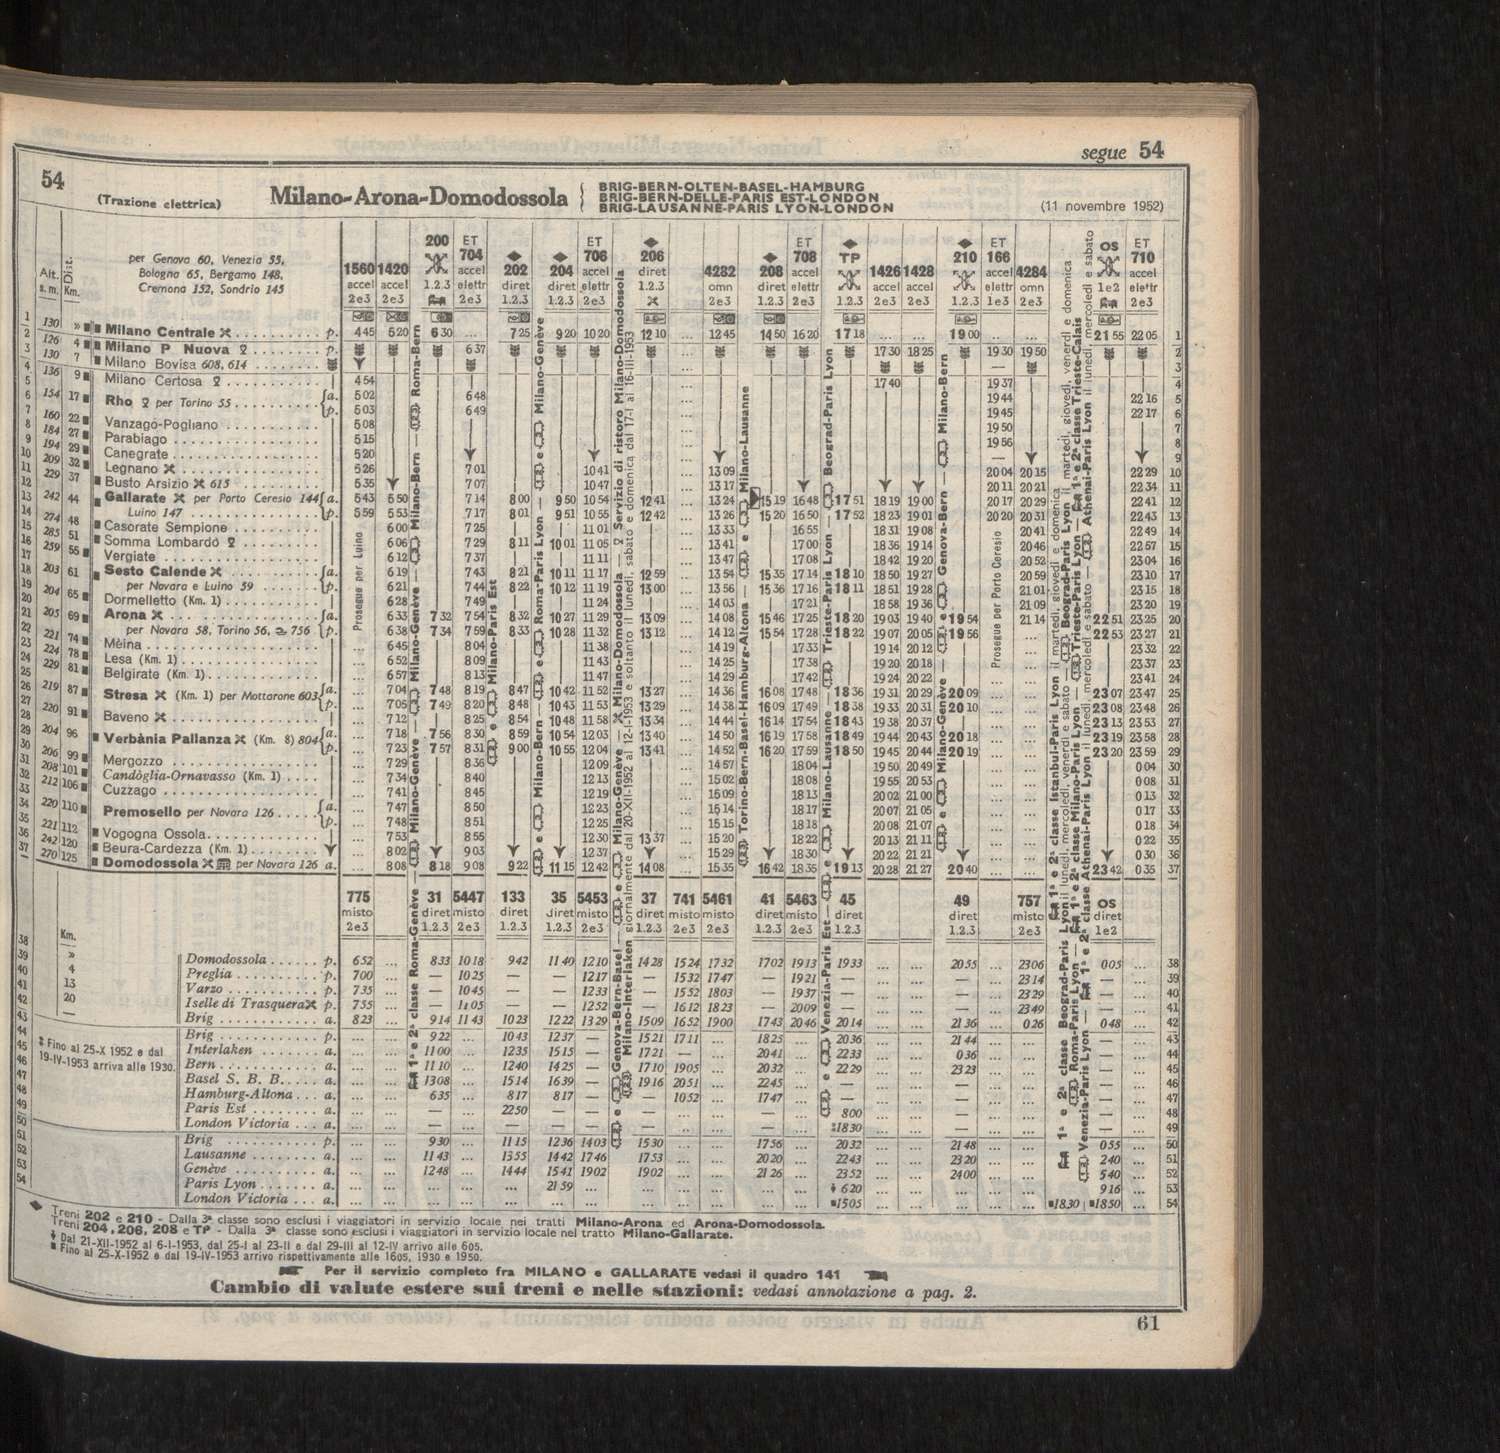 segue 54
54
(Trazione elettrica)
Milano-Arona-Domodossola
BRIG-BERN-OLTEN-BASEL-HAMBURG
BRIG-BERN-DELLE-PARIS EST-LONDON
BRIG-LAUSANNE-PARIS LYON-LONDON
(11 novembre 1952)
Alt. s. m.
Dist. Km.
per Genova 60, Venezia 55,
Bologna 65, Bergamo 148,
Cremona 152, Sondrio 145
1560 accel 2e3
1420 accel 2e3
200 1.2.3
ET 704 accel elettr 2e3
202 diret 1.2.3
204 diret 1.2.3
ET 706 accel elettr 2e3
206 diret 1.2.3
4282 omn 2e3
208 diret 1.2.3
ET 708 accel elettr 2e3
TP 1.2.3
1426 accel 2e3
1428 accel 2e3
210 1.2.3
ET 166 accel 1e3
4284 omn 2e3
OS 1e2
ET 710 accel elettr 2e3
Milano Centrale p. 4 45 5 20 6 30 ... 7 25 9 20 10 20 12 10 ... 12 45 14 50 16 20 17 18 ... ... 19 00 ... ... 21 55 22 05 1
Milano P Nuova p. 6 37 17 30 18 25 19 30 19 50 2
Milano Bovisa 608, 614 3
Milano Certosa 4 54 17 40 19 37 4
Rho per Torino 55 a. 5 02 6 48 19 44 22 16 5
p. 5 03 6 49 19 45 22 17 6
Vanzago-Pogliano 5 08 19 50 7
Parabiago 5 15 19 56 8
Canegrate 5 20 — 9
Legnano 5 26 7 01 10 41 13 09 20 04 20 15 22 29 10
Busto Arsizio 615 5 35 7 07 10 47 13 17 20 11 20 21 22 34 11
Gallarate per Porto Ceresio 144 a. 5 43 5 50 7 14 8 00 9 50 10 54 12 41 13 24 15 19 16 48 17 51 18 19 19 00 20 17 20 29 22 41 12
Luino 147 p. 5 59 5 53 7 17 8 01 9 51 10 55 12 42 13 26 15 20 16 50 17 52 18 23 19 01 20 20 20 31 22 43 13
Casorate Sempione 6 00 7 25 11 01 13 33 16 55 18 31 19 08 20 41 22 49 14
Somma Lombardo 6 06 7 29 8 11 10 01 11 05 13 41 17 00 18 36 19 14 20 46 22 57 15
Vergiate 6 12 7 37 11 11 13 47 17 08 18 42 19 20 20 52 23 04 16
Sesto Calende a. 6 19 7 43 8 21 10 11 11 17 12 59 13 54 15 35 17 14 18 10 18 50 19 27 20 59 23 10 17
per Novara e Luino 59 p. 6 21 7 44 8 22 10 12 11 19 13 00 13 56 15 36 17 16 18 11 18 51 19 28 21 01 23 15 18
Dormelletto (Km. 1) 6 28 7 49 11 24 14 03 17 21 18 58 19 36 21 09 23 20 19
Arona a. 6 33 7 32 7 54 8 32 10 27 11 29 13 09 14 08 15 46 17 25 18 20 19 03 19 40 19 54 21 14 22 51 23 25 20
per Novara 58, Torino 56, 756 p. 6 38 7 34 7 59 8 33 10 28 11 32 13 12 14 12 15 54 17 28 18 22 19 07 20 05 19 56 ... 22 53 23 27 21
Mèina 6 45 8 04 11 38 14 19 17 33 19 14 20 12 23 32 22
Lesa (Km. 1) 6 52 8 09 11 43 14 25 17 38 19 20 20 18 23 37 23
Belgirate (Km. 1) 6 57 8 13 11 47 14 29 17 42 19 24 20 22 23 41 24
Stresa (Km. 1) per Mottarone 603 a. 7 04 7 48 8 19 8 47 10 42 11 52 13 27 14 36 16 08 17 48 18 36 19 31 20 29 20 09 23 07 23 47 25
p. 7 05 7 49 8 20 8 48 10 43 11 53 13 29 14 38 16 09 17 49 18 38 19 33 20 31 20 10 23 08 23 48 26
Baveno 7 12 8 25 8 54 10 48 11 58 13 34 14 44 16 14 17 54 18 43 19 38 20 37 23 13 23 53 27
Verbània Pallanza (Km. 8) 804 a. 7 18 7 56 8 30 8 59 10 54 12 03 13 40 14 50 16 19 17 58 18 49 19 44 20 43 20 18 23 19 23 58 28
p. 7 23 7 57 8 31 9 00 10 55 12 04 13 41 14 52 16 20 17 59 18 50 19 45 20 44 20 19 23 20 23 59 29
Mergozzo 7 29 8 36 12 09 14 57 18 04 19 50 20 49 0 04 30
Candòglia-Ornavasso (Km. 1) 7 34 8 40 12 13 15 02 18 08 19 55 20 53 0 08 31
Cuzzago 7 41 8 45 12 19 15 09 18 13 20 02 21 00 0 13 32
Premosello per Novara 126 a. 7 47 8 50 12 23 15 14 18 17 20 07 21 05 0 17 33
p. 7 48 8 51 12 25 15 15 18 18 20 08 21 07 0 18 34
Vogogna Ossola 7 53 8 55 12 30 13 37 15 20 18 22 20 13 21 11 0 22 35
Beura-Cardezza (Km. 1) 8 02 9 03 12 37 15 29 18 30 20 22 21 21 0 30 36
Domodossola per Novara 126 a. 8 08 8 18 9 08 9 22 11 15 12 42 14 08 15 35 16 42 18 35 19 13 20 28 21 27 20 40 23 42 0 35 37
Prosegue per Luino
Milano-Genève — Milano-Bern — Roma-Bern
1ª e 2ª classe Roma-Genève
Milano-Paris Est
Milano-Bern — e Roma-Paris Lyon — e Milano-Genève
Genova-Bern-Basel — e Milano-Genève — Milano-Domodossola — Servizio di ristoro Milano-Domodossola
Milano-Interlaken giornalmente dal 20-XII-1952 al 12-I-1953 e soltanto il lunedì, sabato e domenica dal 17-I al 16-III-1953
Torino-Bern-Basel-Hamburg-Altona — e Milano-Lausanne
Venezia-Paris Est — e Milano-Lausanne — Trieste-Paris Lyon — Beograd-Paris Lyon
e Milano-Genève — e Genova-Bern — Milano-Bern
Prosegue per Porto Ceresio
775 misto 2e3
31 diret 1.2.3
5447 misto 2e3
133 diret 1.2.3
35 diret 1.2.3
5453 misto 2e3
37 diret 1.2.3
741 misto 2e3
5461 misto 2e3
41 diret 1.2.3
5463 misto 2e3
45 diret 1.2.3
49 diret 1.2.3
757 misto 2e3
OS diret 1e2
Km.
Domodossola p. 6 52 ... 8 33 10 18 9 42 11 40 12 10 14 28 15 24 17 32 17 02 19 13 19 33 ... ... 20 55 ... 23 06 0 05 ... 38
4 Preglia p. 7 00 ... — 10 25 — — 12 17 — 15 32 17 47 — 19 21 — ... ... — ... 23 14 — ... 39
13 Varzo p. 7 35 ... — 10 45 — — 12 33 — 15 52 18 03 — 19 37 — ... ... — ... 23 29 — ... 40
20 Iselle di Trasquera p. 7 55 ... — 11 05 — — 12 52 — 16 12 18 23 — 20 09 — ... ... — ... 23 49 — ... 41
— Brig a. 8 23 ... 9 14 11 43 10 23 12 22 13 29 15 09 16 52 19 00 17 43 20 46 20 14 ... ... 21 36 ... 0 26 0 48 ... 42
Brig p. 9 22 10 43 12 37 — 15 21 17 11 18 25 20 36 21 44 43
Interlaken a. 11 00 12 35 15 15 — 17 21 — 20 41 22 33 0 36 44
Bern a. 11 10 12 40 14 25 — 17 10 19 05 20 32 22 29 23 23 45
Basel S. B. B. a. 13 08 15 14 16 39 — 19 16 20 51 22 45 — 46
Hamburg-Altona a. 6 35 8 17 8 17 — 10 52 17 47 — 47
Paris Est a. — 22 50 — 8 00 48
London Victoria a. 18 30 49
Brig p. 9 30 11 15 12 36 14 03 15 30 17 56 20 32 21 48 0 55 50
Lausanne a. 11 43 13 55 14 42 17 46 17 53 20 20 22 43 23 20 2 40 51
Genève a. 12 48 14 44 15 41 19 02 19 02 21 26 23 52 24 00 5 40 52
Paris Lyon a. 21 59 6 20 9 16 53
London Victoria a. 15 05 18 30 18 50 54
Fino al 25-X 1952 e dal
19-IV-1953 arriva alle 1930.
Treni 202 e 210 - Dalla 3ª classe sono esclusi i viaggiatori in servizio locale nei tratti Milano-Arona ed Arona-Domodossola.
Treni 204, 206, 208 e TP - Dalla 3ª classe sono esclusi i viaggiatori in servizio locale nel tratto Milano-Gallarate.
Dal 21-XII-1952 al 6-I-1953, dal 25-I al 23-II e dal 29-III al 12-IV arrivo alle 605.
Fino al 25-X-1952 e dal 19-IV-1953 arrivo rispettivamente alle 1605, 1930 e 1950.
Per il servizio completo fra MILANO e GALLARATE vedasi il quadro 141
Cambio di valute estere sui treni e nelle stazioni: vedasi annotazione a pag. 2.
61